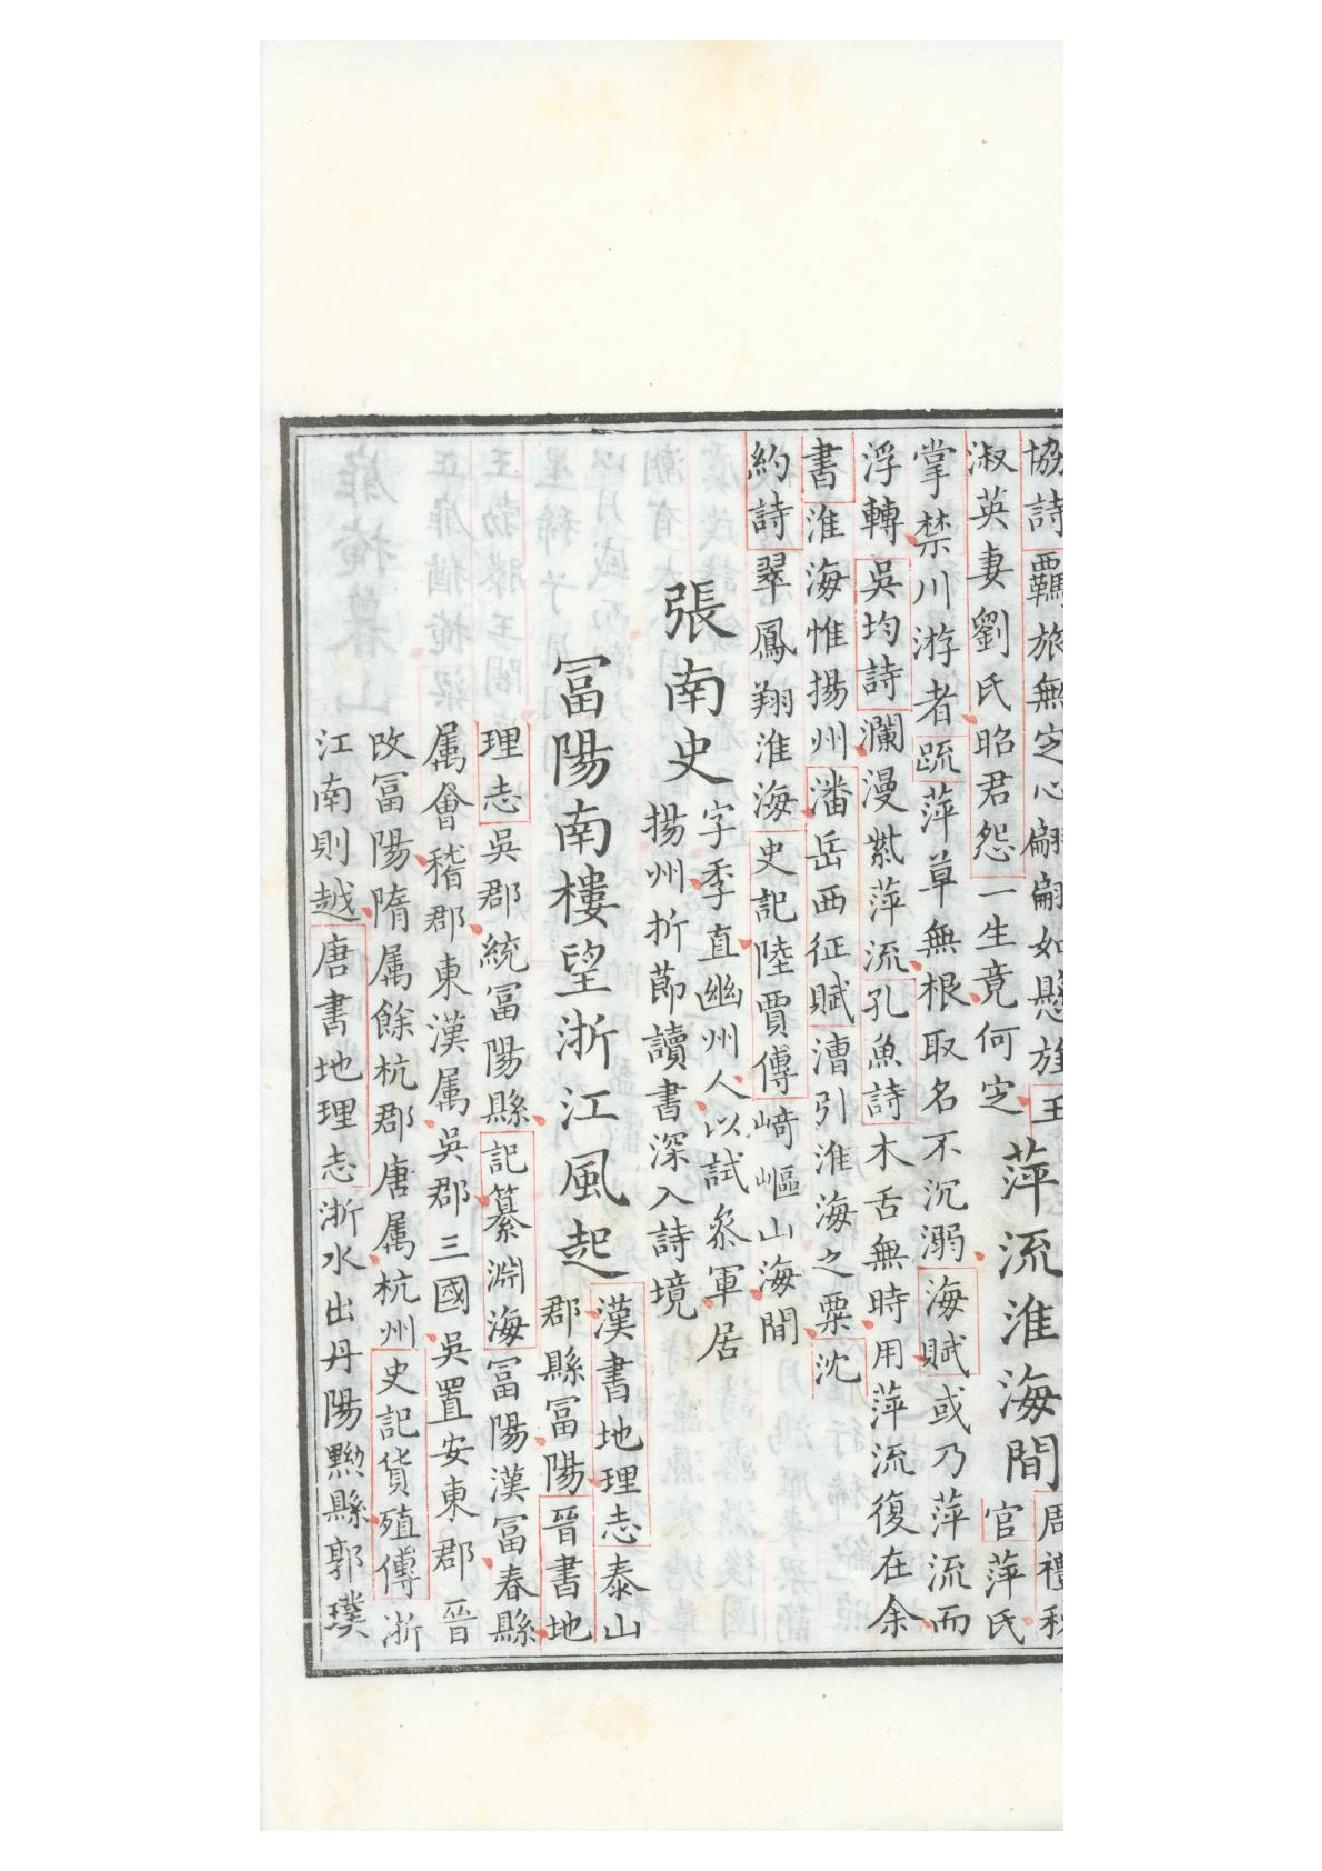 協詩羈旅無定心翩翩如懸旌王
淑英妻劉氏昭君怨一生竟何定
萍流淮海間
周禮秋
官萍氏
掌禁川游者䟽萍草無根取名不沉溺海賦或乃萍流而
浮轉吳均詩瀾漫紫萍流孔魚詩木舌無時用萍流復在余
書淮海惟揚州潘岳西征賦漕引淮海之粟沈
約詩翠鳳翔淮海史記陸賈傳﨑嶇山海間
張南史
字季直幽州人以試叅軍居
揚州折莭讀書深入詩境
冨陽南樓望浙江風起
漢書地理志泰山
郡縣冨陽晉書地
理志吳郡統冨陽縣記纂淵海冨陽漢冨春縣
属會稽郡東漢属吳郡三國吳置安東郡晉
改冨陽隋属餘杭郡唐属杭州史記貨殖傳浙
江南則越唐書地理志浙水出丹陽黝縣郭璞